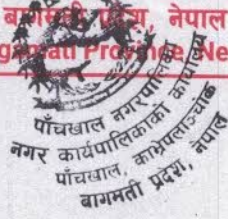 बागमती प्रदेश, नेपाल
gamati Province, Ne
पाँचखाल नगरपालिका
नगर कार्यपालिकाको कार्यालय
पाँचखाल, काभ्रेपलाञ्चोक
बागमती प्रदेश, नेपाल